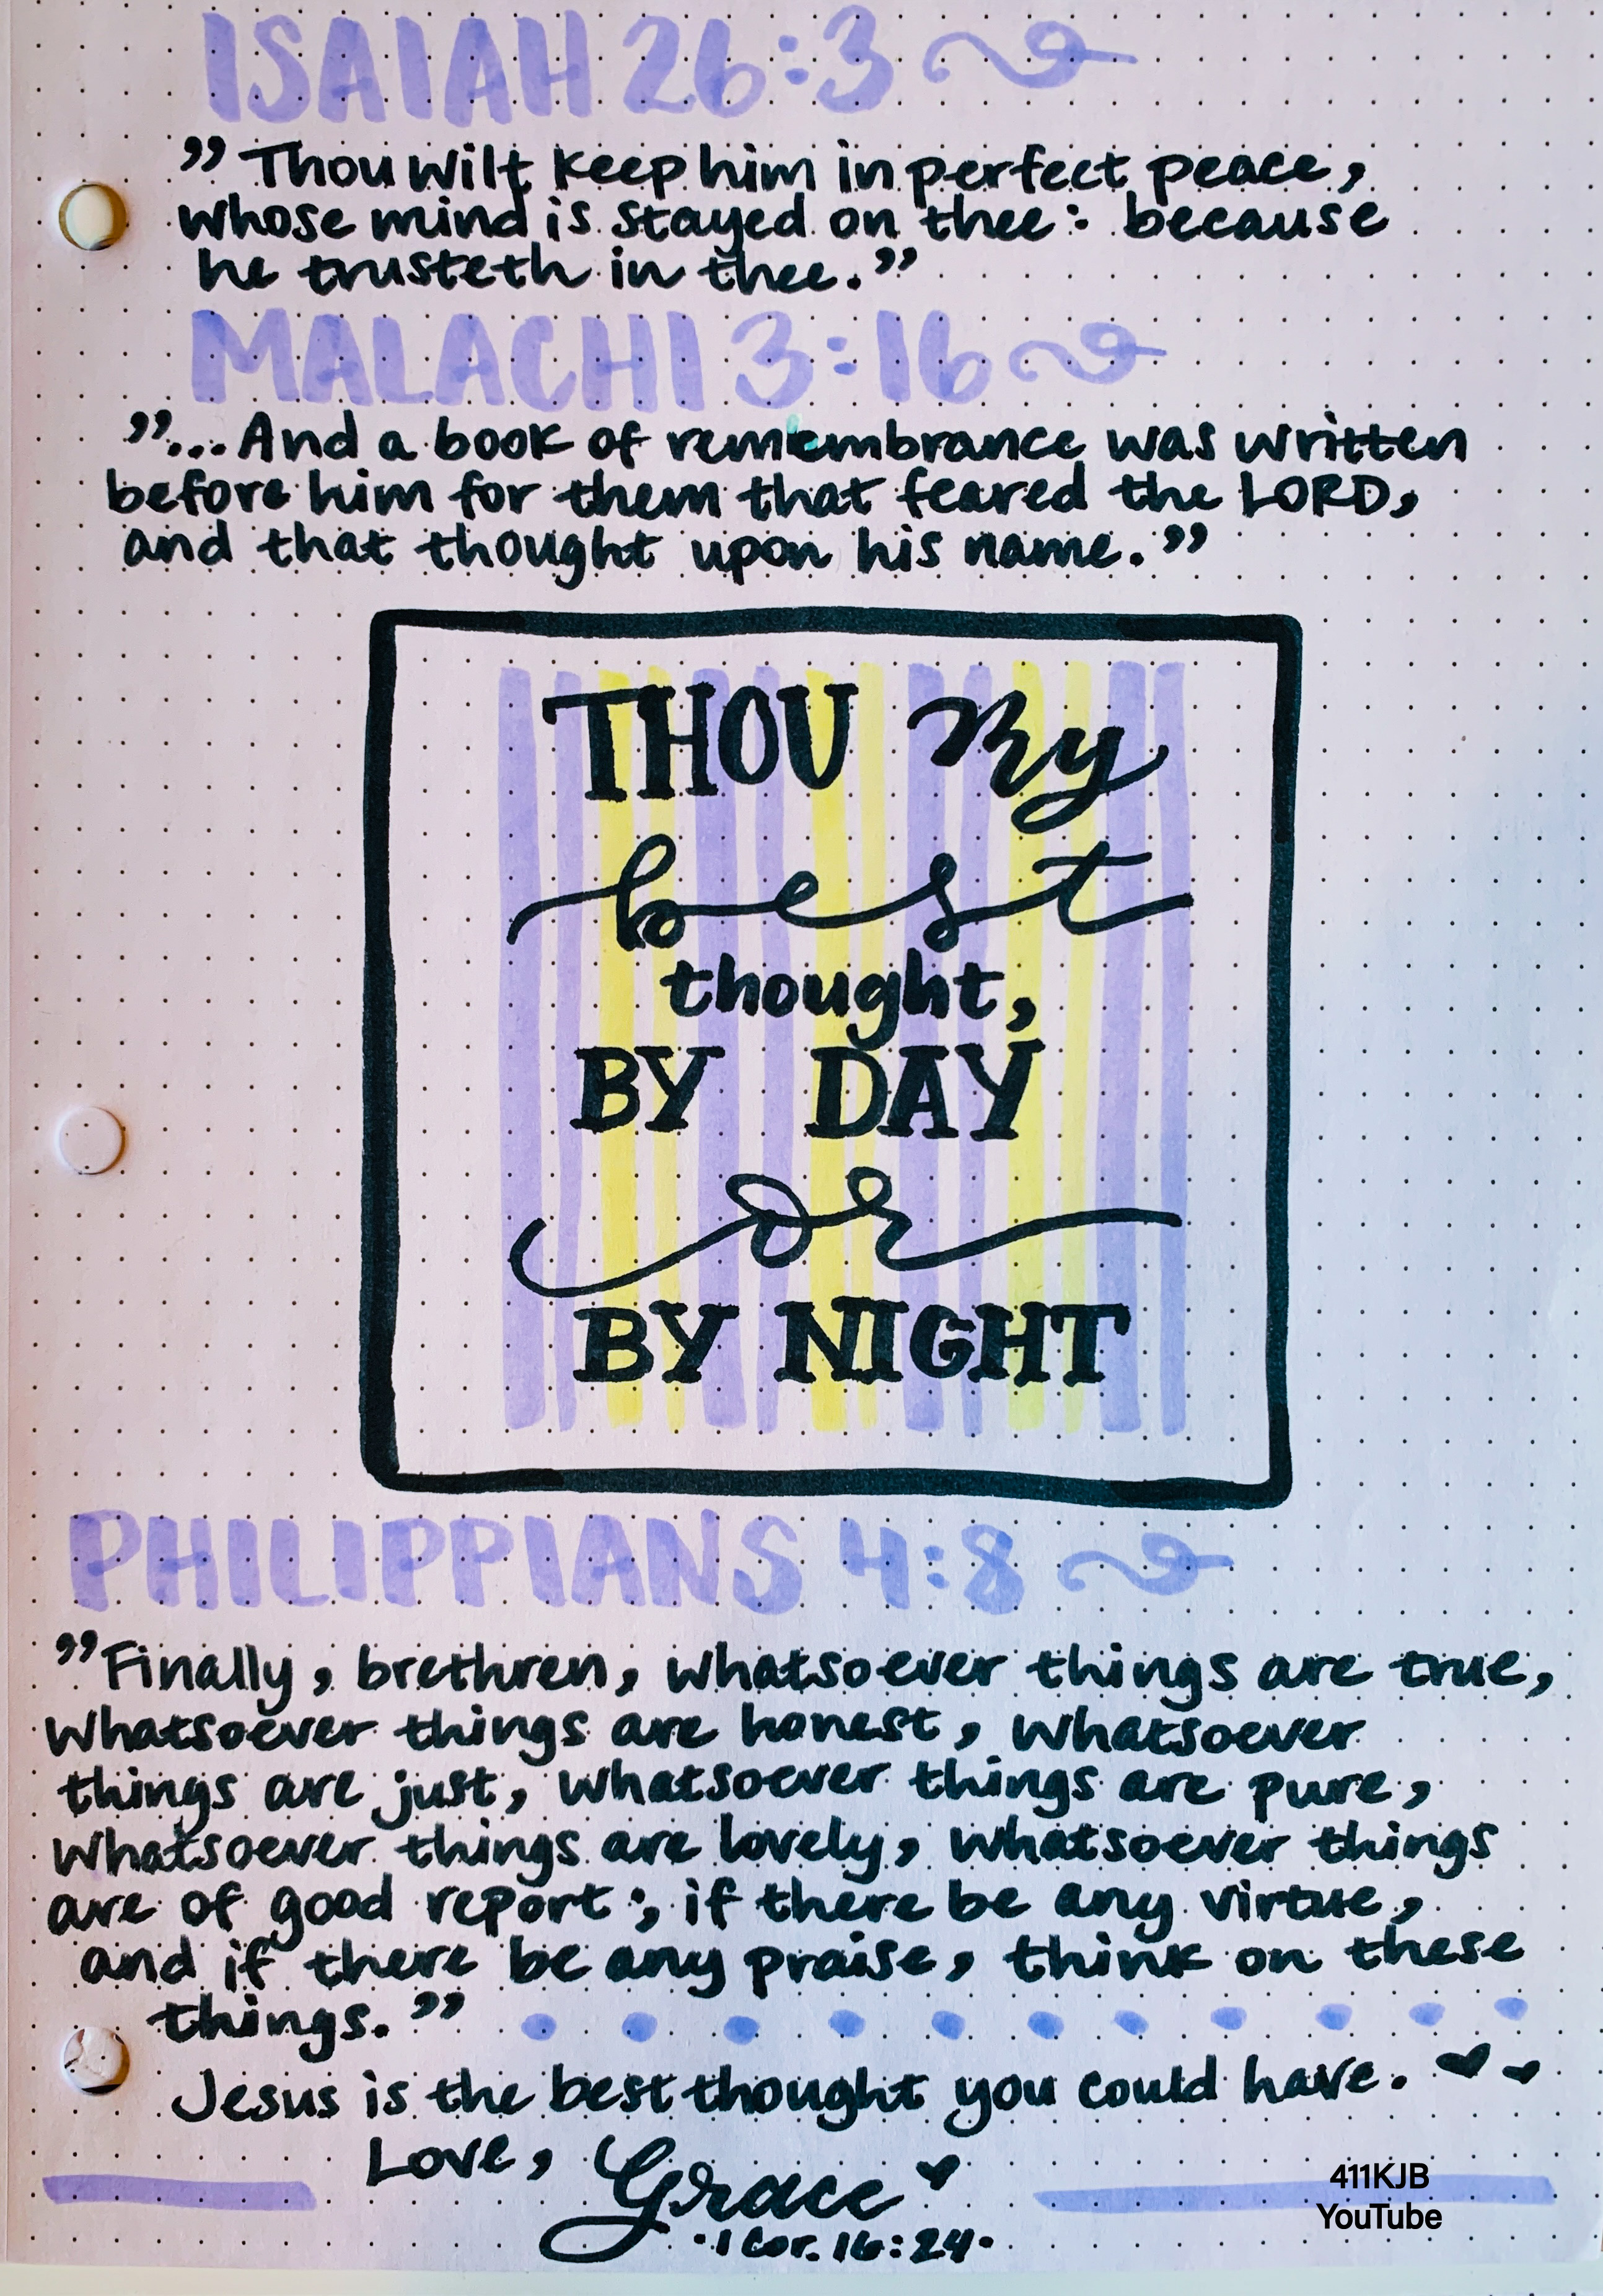 ISAIAH 26:3
”Thou wilt keep him in perfect peace,
whose mind is stayed on thee: because
he trusteth in thee.”
MALACHI 3:16
”...And a book of remembrance was written
before him for them that feared the LORD,
and that thought upon his name.”
THOU My
best
thought,
BY DAY
or
BY NIGHT
PHILIPPIANS 4:8
”Finally, brethren, whatsoever things are true,
whatsoever things are honest, whatsoever
things are just, whatsoever things are pure,
whatsoever things are lovely, whatsoever things
are of good report; if there be any virtue,
and if there be any praise, think on these
things.”
Jesus is the best thought you could have.
Love, Grace
·1 Cor. 16:24·
411KJB
YouTube